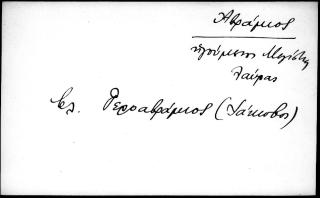 Αβράμιος
ηγούμενος Μεγίστης
Λαύρας
βλ. Γεροαβράμιος (Ιάκωβος)